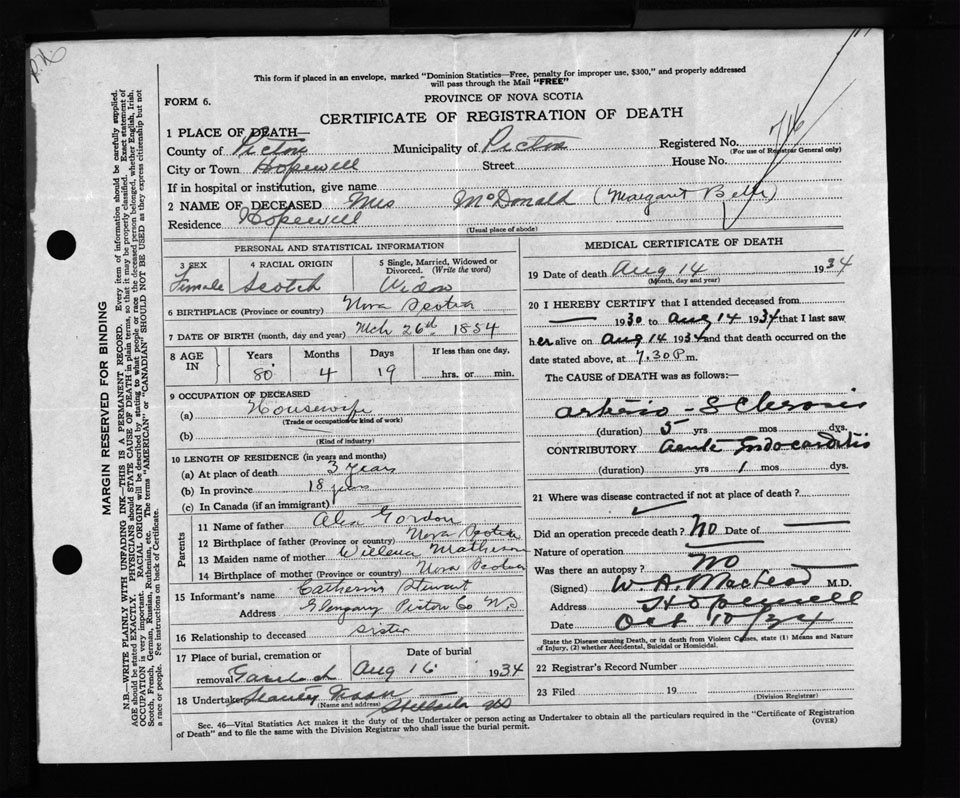 This form if placed in an envelope, marked "Dominion Statistics—Free, penalty for improper use, $300," and properly addressed
will pass through the Mail "FREE"
PROVINCE OF NOVA SCOTIA
FORM 6.
CERTIFICATE OF REGISTRATION OF DEATH
716
1 PLACE OF DEATH—
County of Pictou Municipality of Pictou Registered No.
(For use of Registrar General only)
City or Town Hopewell Street House No.
If in hospital or institution, give name
2 NAME OF DECEASED Mrs McDonald (Margaret Bella)
Residence Hopewell
(Usual place of abode)
PERSONAL AND STATISTICAL INFORMATION
3 SEX 4 RACIAL ORIGIN 5 Single, Married, Widowed or Divorced. (Write the word)
Female Scotch Widow
6 BIRTHPLACE (Province or country) Nova Scotia
7 DATE OF BIRTH (month, day and year) Mch 26th 1854
8 AGE IN Years Months Days If less than one day,
80 4 19 hrs. or min.
9 OCCUPATION OF DECEASED
(a) Housewife
(Trade or occupation or kind of work)
(b)
(Kind of industry)
10 LENGTH OF RESIDENCE (in years and months)
(a) At place of death 3 years
(b) In province 18 years
(c) In Canada (if an immigrant)
Parents
11 Name of father Alex Gordon
12 Birthplace of father (Province or country) Nova Scotia
13 Maiden name of mother Willena Matheson
14 Birthplace of mother (Province or country) Nova Scotia
15 Informant's name Catherine Stewart
Address Glengary Pictou Co NS
16 Relationship to deceased sister
17 Place of burial, cremation or removal Date of burial
Gairloch Aug 16 1934
18 Undertaker Stanley
(Name and address) NS
MEDICAL CERTIFICATE OF DEATH
19 Date of death Aug 14 1934
(Month, day and year)
20 I HEREBY CERTIFY that I attended deceased from
— 1930 to Aug 14 1934 that I last saw
her alive on Aug 14 1934 and that death occurred on the
date stated above, at 7.30 P m.
The CAUSE of DEATH was as follows:—
Arterio-Sclerosis
(duration) 5 yrs mos dys.
CONTRIBUTORY Acute Endocarditis
(duration) yrs 1 mos dys.
21 Where was disease contracted if not at place of death?
Did an operation precede death? No Date of —
Nature of operation —
Was there an autopsy? No
(Signed) W. A. MacLeod M.D.
Address Hopewell
Date Oct 10/34
State the Disease causing Death, or in death from Violent Causes, state (1) Means and Nature
of Injury, (2) whether Accidental, Suicidal or Homicidal.
22 Registrar's Record Number
23 Filed 19
(Division Registrar)
Sec. 46—Vital Statistics Act makes it the duty of the Undertaker or person acting as Undertaker to obtain all the particulars required in the "Certificate of Registration
of Death" and to file the same with the Division Registrar who shall issue the burial permit. (OVER)
MARGIN RESERVED FOR BINDING
N.B.—WRITE PLAINLY WITH UNFADING INK—THIS IS A PERMANENT RECORD. Every item of information should be carefully supplied.
AGE should be stated EXACTLY. PHYSICIANS should STATE CAUSE OF DEATH in plain terms, so that it may be properly classified. Exact statement of
OCCUPATION is very important. RACIAL ORIGIN will be described by stating to what people or race the deceased person belonged, whether English, Irish,
Scotch, French, German, Russian, Ruthenian, etc. The terms "AMERICAN" or "CANADIAN" SHOULD NOT BE USED as they express citizenship but not
a race or people. See instructions on back of Certificate.